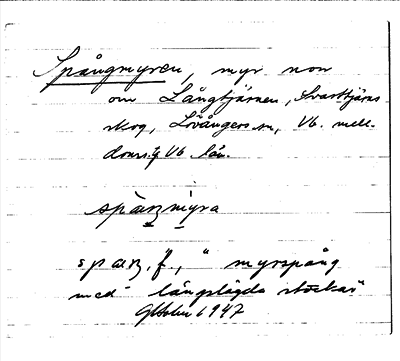 Spångmyren, myr norr
om Långtjärnen, Svarttjärns
skog, Lövångers sn, Vb. mell.
domsg Vb län.
spàŋmyra
spaŋ, f., "myrspång
med långslagda stockar"
1947